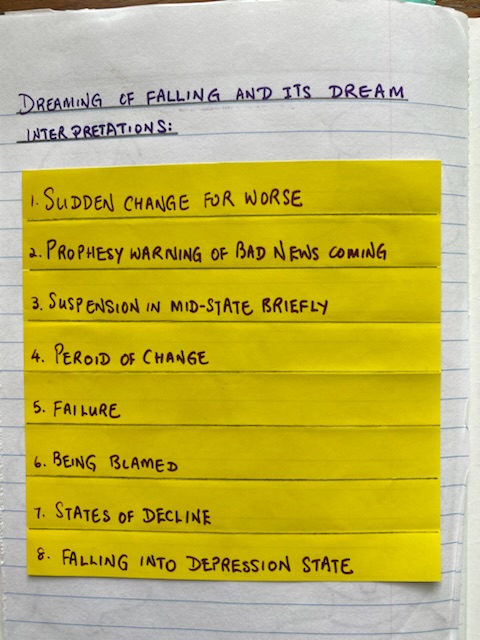 DREAMING OF FALLING AND ITS DREAM
INTERPRETATIONS:
1. SUDDEN CHANGE FOR WORSE
2. PROPHESY WARNING OF BAD NEWS COMING
3. SUSPENSION IN MID-STATE BRIEFLY
4. PEROID OF CHANGE
5. FAILURE
6. BEING BLAMED
7. STATES OF DECLINE
8. FALLING INTO DEPRESSION STATE